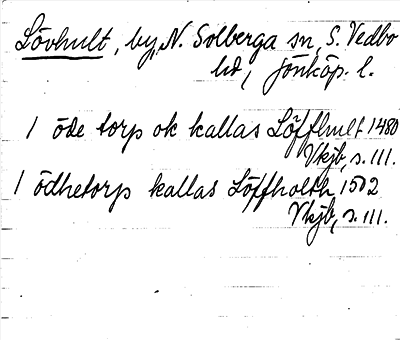 Lövhult, by, N. Solberga sn, S. Vedbo
hd, Jönköp. l.
1 öde torp ok kallas Löffhult 1480
Vkjb, s. 111.
1 ödhetorp kallas Löffholth 1502
Vkjb, s. 111.